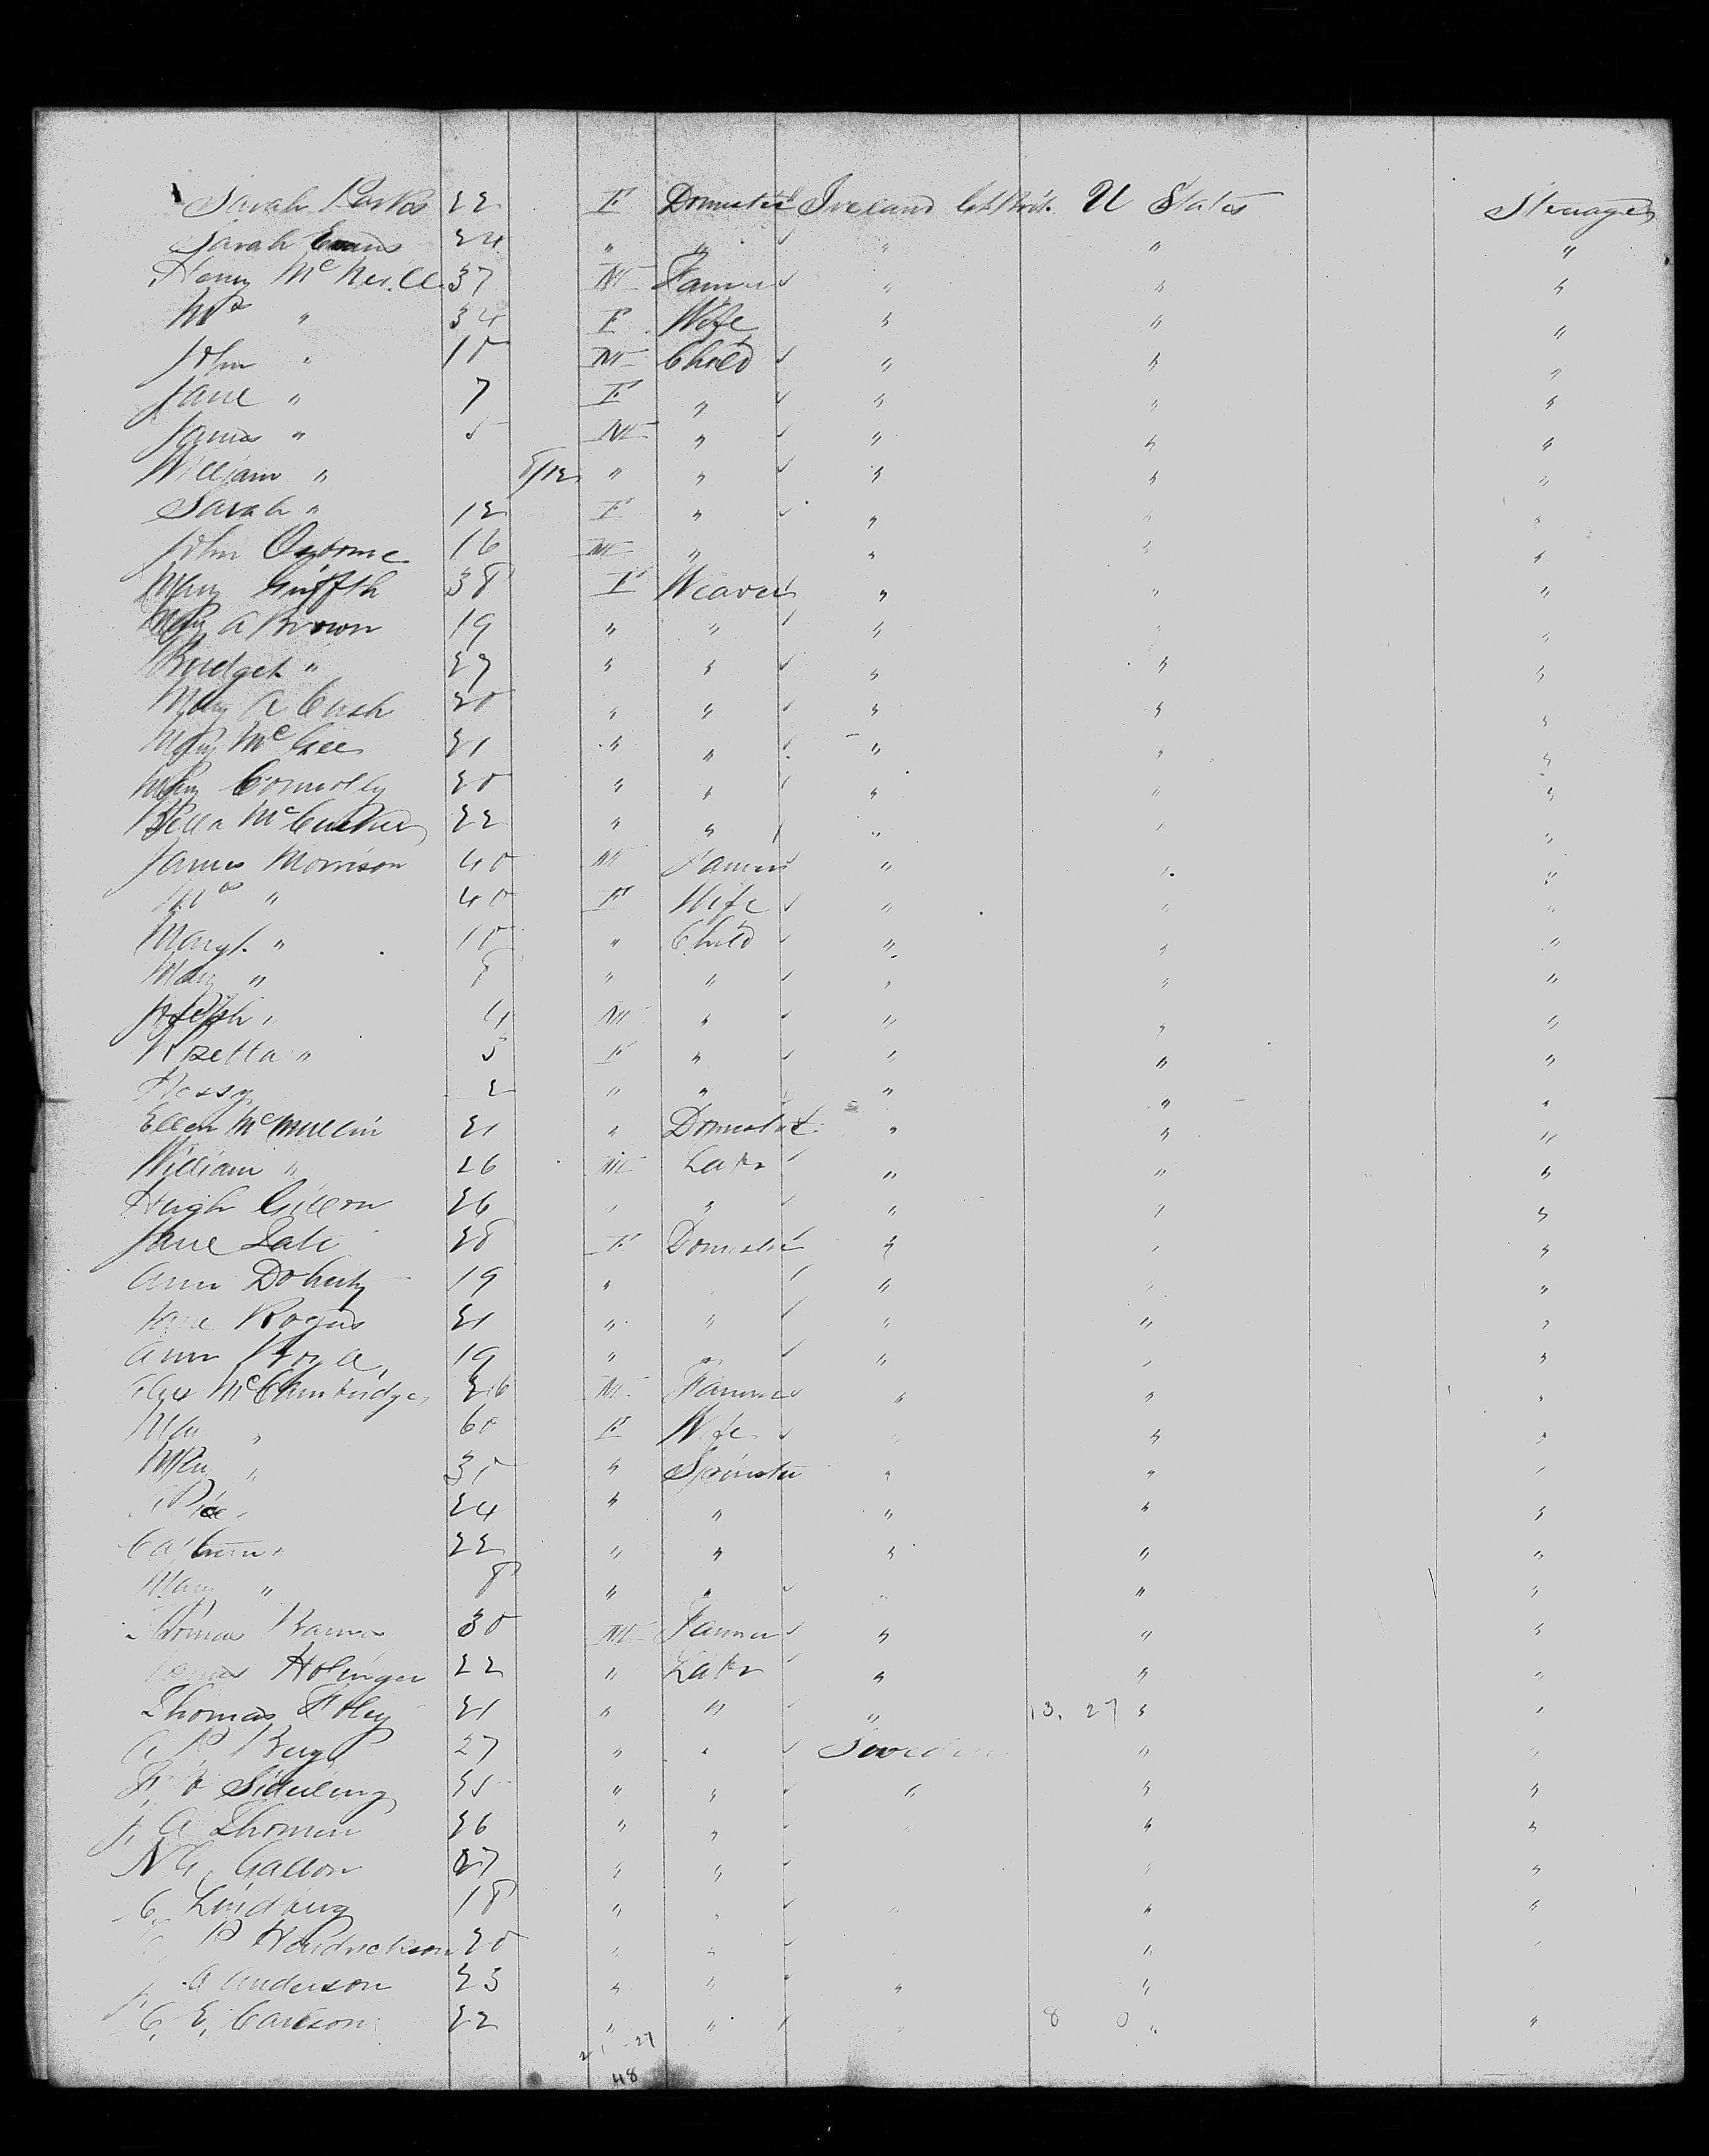 Sarah 22 F Domestic Ireland U States Steerage
Sarah Evans 24 " " " " "
Henry McNeill 37 M Farmer " " "
Mrs " 34 F Wife " " "
John " 10 M Child " " "
Jane " 7 F " " " "
James " 5 M " " " "
William " 8/12 " " " " "
Sarah " 12 F " " " "
John Osborne 16 M " " " "
Mary Griffth 38 F Weaver " " "
Mary A Brown 19 " " " " "
Bridget " 27 " " " " "
Mary A Cush 20 " " " " "
Mary McGee 21 " " " " "
Mary Connolly 20 " " " " "
Bella 22 " " " " "
James Morrison 40 M Farmer " " "
Mrs " 40 F Wife " " "
Margt. " 10 " Child " " "
Mary " 8 " " " " "
Joseph " 4 M " " " "
Rosetta " 3 F " " " "
2 " " " " "
Ellen McMullin 21 " Domestic " " "
William " 26 M Labr " " "
Hugh Gillon 26 " " " " "
Jane 28 F Domestic " " "
Ann Doherty 19 " " " "
Jane Rogers 21 " " " " "
Ann Boyle 19 " " " " "
McCambridge M Farmer " " "
" 60 F Wife " "
Mary " 30 " Spinster " " "
24 " " " " "
22 " " " " "
Mary " 8 " " " " "
Thomas 30 M Farmer " " "
James Holinger 22 " Labr " " "
Thomas Foley 21 " " " 13. 27 " "
Berg 27 " " Sweden " "
25 " " " " "
J. A Thomen 26 " " " "
N G. Gallon 27 " " " "
C. Lindberg 18 " " " "
P Hendrickson 20 " " " "
J. A Anderson 23 " " " "
C. E. Carlson 22 " " " 8 0 " "
21 27
48